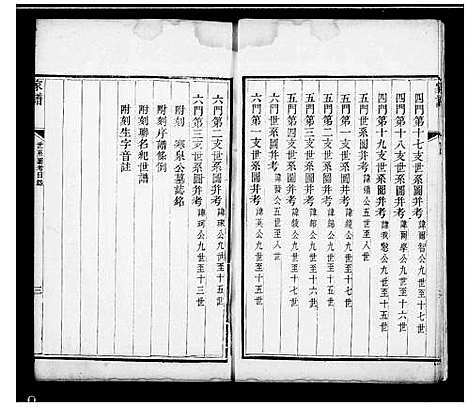 四門第十七支世系圖并考 諱爾智公九世至十七世
四門第十八支世系圖并考 諱爾學公九世至十六世
四門第十九支世系圖并考 諱 公九世至十五世
五門世系圖并考 諱 公五世至八世
五門第二支世系圖并考 諱 公九世至十七世
五門第三支世系圖并考 諱 公九世至十五世
五門第四支世系圖并考 諱 公九世至十五世
六門世系圖并考 諱 公五世至八世
六門第一支世系圖并考 諱 公九世至十六世
六門第二支世系圖并考 諱 公九世至十五世
六門第三支世系圖并考 諱 公九世至十三世
附刻 寒泉公墓誌銘
六門序譜條例
附刻聯名紀世譜
附刻生字音註
家譜
世系圖考目錄
三